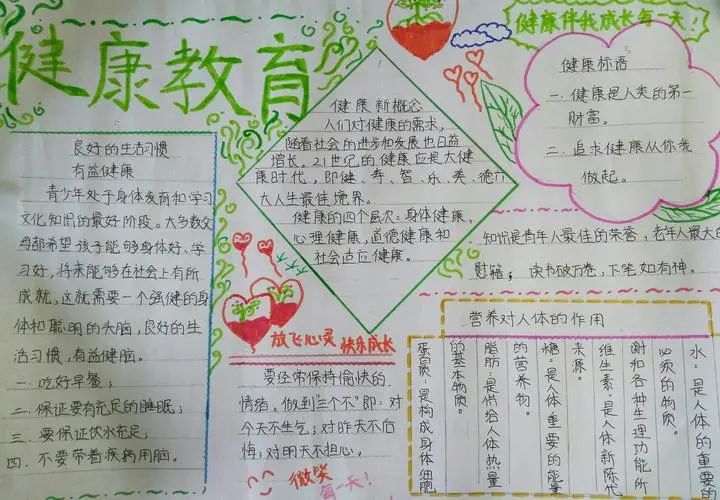 健康教育
健康伴我成长每一天!
良好的生活习惯
有益健康
青少年处于身体发育和学习
文化知识的最好阶段。大多数父
母都希望孩子能够身体好、学
习好,将来能够在社会上有所
成就,这就需要一个强健的身
体和聪明的头脑,良好的生
活习惯,有益健脑。
一.吃好早餐;
二.保证要有充足的睡眠;
三.要保证饮水充足;
四.不要带着疾病用脑。
健康新概念
人们对健康的需求,
随着社会的进步和发展也日益
增长。21世纪的健康应是大健
康时代,即健、寿、智、乐、美、德六
大人生最佳境界。
健康的四个层次:身体健康,
心理健康,道德健康和
社会适应健康。
健康标语
一.健康是人类的第一
财富。
二.追求健康从你我
做起。
知识是青年人最佳的荣誉,老年人最大的
慰籍; 读书破万卷,下笔如有神。
放飞心灵 快乐成长
要经常保持愉快的
情绪。做到"三个不"即:对
今天不生气;对昨天不后
悔;对明天不担心。
微笑
每一天!
营养对人体的作用
水:是人体的重要的
必须的物质。
谢和各种生理功能所
维生素:是人体新陈代
来源。
糖:是人体重要的能量
的营养物。
脂肪:是供给人体热量
的基本物质。
蛋白质:是构成身体细胞